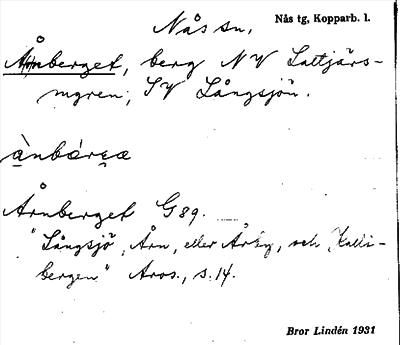 Nås sn. Nås tg, Kopparb. l.
Årnberget, berg NV Saltjärs-
myren; SV Långsjön.
ànbárɛa
Årnberget G89.
"Långsjö, Årn, eller Årby, och Kalli-
bergen" Aros., s. 14.
Bror Lindén 1931